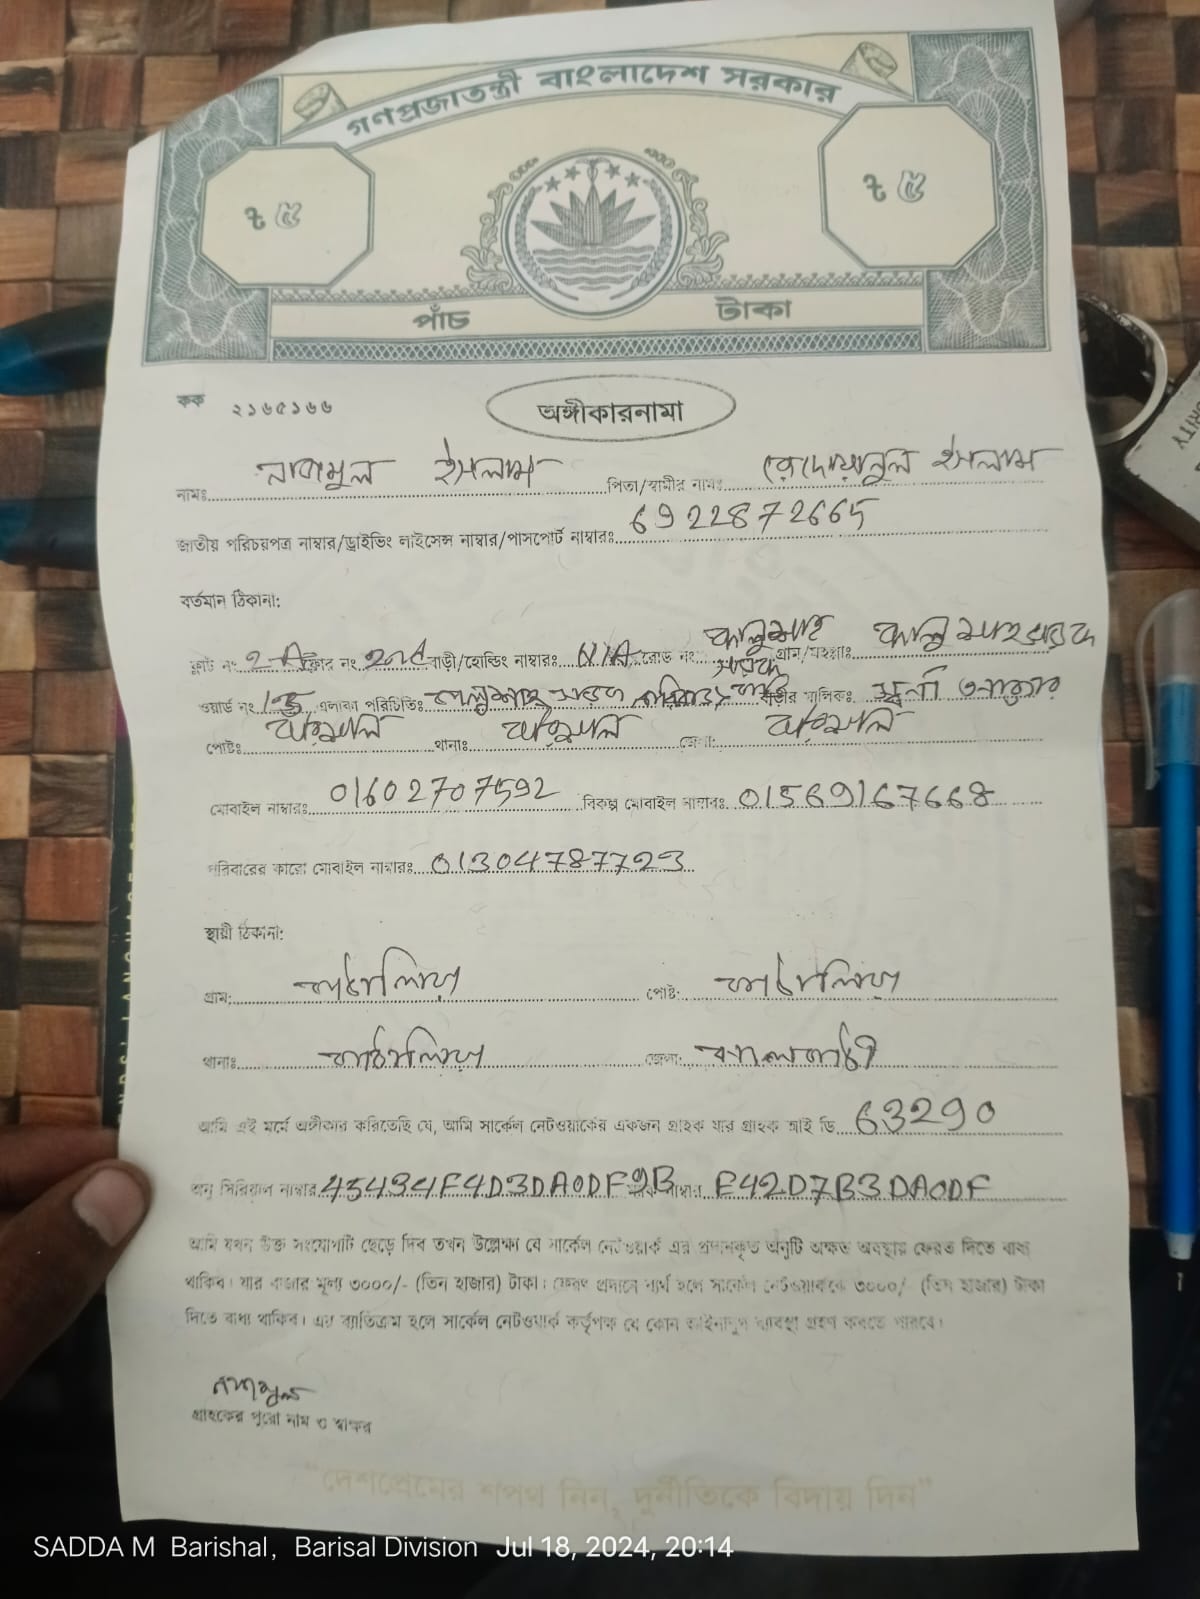 গণপ্রজাতন্ত্রী বাংলাদেশ সরকার
৳ ৫ ৳ ৫
পাঁচ টাকা
কক ২১৬৫১৬৬
অঙ্গীকারনামা
নামঃ নাজমুল ইসলাম পিতা/স্বামীর নামঃ রেদোয়ানুল ইসলাম
জাতীয় পরিচয়পত্র নাম্বার/ড্রাইভিং লাইসেন্স নাম্বার/পাসপোর্ট নাম্বারঃ 6922872665
বর্তমান ঠিকানা:
ফ্লাট নং 2-A ফ্লোর নং 2nd বাড়ী/হোল্ডিং নাম্বারঃ N/A রোড নং কালুশাহ সড়ক গ্রাম/মহল্লাঃ কালুশাহ সড়ক
ওয়ার্ড নং এলাকা পরিচিতিঃ কালুশাহ সড়ক বাড়ীর মালিকঃ
পোষ্টঃ বরিশাল থানাঃ বরিশাল জেলাঃ বরিশাল
মোবাইল নাম্বারঃ 01602707592 বিকল্প মোবাইল নাম্বারঃ 01569167668
পরিবারের কারো মোবাইল নাম্বারঃ 01304787723
স্থায়ী ঠিকানা:
গ্রাম: কাঠালিয়া পোষ্ট: কাঠালিয়া
থানাঃ কাঠালিয়া জেলা: ঝালকাঠী
আমি এই মর্মে অঙ্গীকার করিতেছি যে, আমি সার্কেল নেটওয়ার্কের একজন গ্রাহক যার গ্রাহক আই ডি 63290
অনু সিরিয়াল নাম্বার 45494F4D3DA0DF9B নাম্বার E42D7B3DA0DF
আমি যখন উক্ত সংযোগটি ছেড়ে দিব তখন উল্লেক্ষ্য যে সার্কেল নেটওয়ার্ক এর প্রদানকৃত অনুটি অক্ষত অবস্থায় ফেরত দিতে বাধ্য
থাকিব। যার বাজার মূল্য ৩০০০/- (তিন হাজার) টাকা। ফেরৎ প্রদানে ব্যর্থ হলে সার্কেল নেটওয়ার্ককে ৩০০০/- (তিন হাজার) টাকা
দিতে বাধ্য থাকিব। এর ব্যতিক্রম হলে সার্কেল নেটওয়ার্ক কর্তৃপক্ষ যে কোন আইনানুগ ব্যবস্থা গ্রহণ করতে পারবে।
নাজমুল
গ্রাহকের পুরো নাম ও স্বাক্ষর
"দেশপ্রেমের শপথ নিন, দুর্নীতিকে বিদায় দিন"
SADDA M Barishal, Barisal Division Jul 18, 2024, 20:14